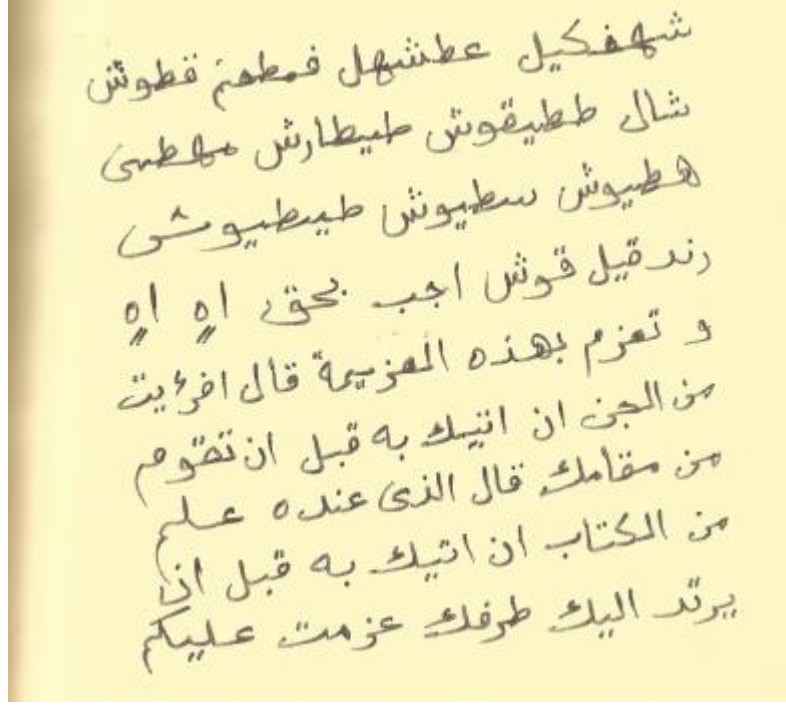 شهفكيل عطشهل فمطهم قطوش
شال ططيقوش طيطارش مهطهى
هطيوش سطيوش طيطيوش
رندقيل قوش اجب بحق اهٍ اهٍ
و تعزم بهذه العزيمة قال افرئيت
من الجن ان اتيك به قبل ان تقوم
من مقامك قال الذى عنده علم
من الكتاب ان اتيك به قبل ان
يرتد اليك طرفك عزمت عليكم